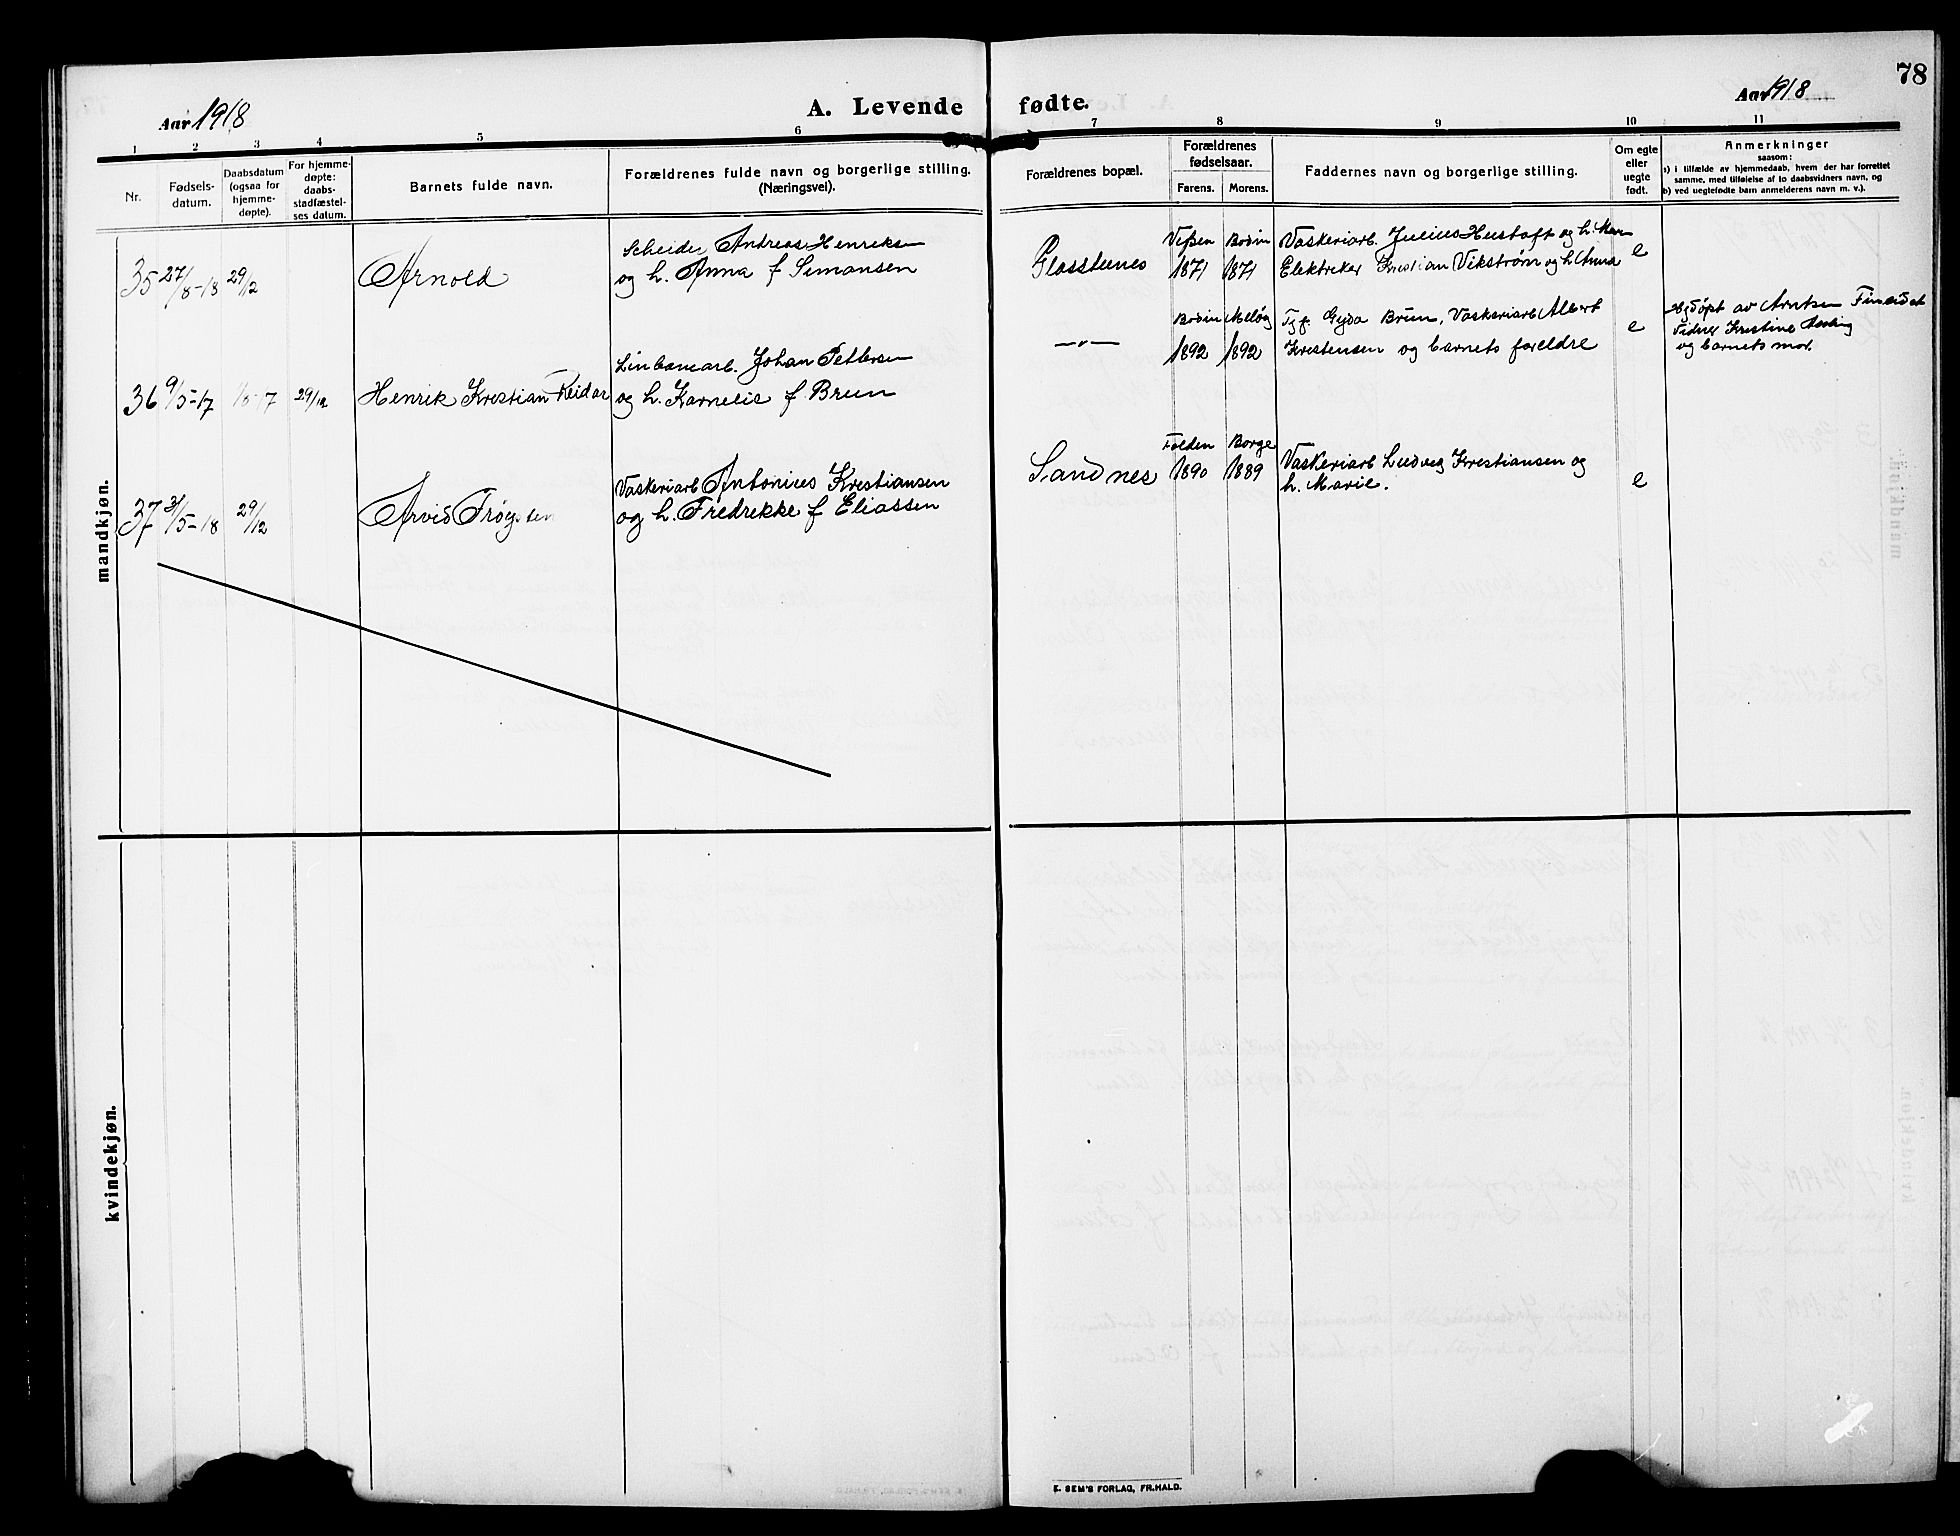 78
Aar 1918
A. Levende fødte.
Aar 1918
1 2 3 4 5 6 7 8 9 10 11
Nr.
Fødsels-
datum.
Daabsdatum
(ogsaa for
hjemme-
døpte).
For hjemme-
døpte:
daabs-
stadfæstel-
ses datum.
Barnets fulde navn.
Forældrenes fulde navn og borgerlige stilling.
(Næringsvei).
Forældrenes bopæl.
Forældrenes
fødselsaar.
Farens. Morens.
Faddernes navn og borgerlige stilling.
Om egte
eller
uegte
født.
Anmerkninger
saasom:
a) i tilfælde av hjemmedaab, hvem der har forrettet
samme, med tilføielse af to daabsvidners navn, og
b) ved uegtefødte barn anmelderens navn m. v.).
mandkjøn.
Scheider Andreas Henriksen
35 27/8-18 29/12 Arnold og h. Anna f Simonsen
Glasstunes
Vefsen Bodin
1871 1871
Vaskeriarb. Julius Hustoft og h. Mara
Elektriker Kristian Vikstrøm og h Anna
e
Linbanearb. Johan Pettersen
36 9/5-17 29/12 Henrik Kristian Reidar og h. Karnelis f Bruun
—"—
Bodin Meløy
1892 1892
Tj.f. Gyda Bruun, Vaskeriarb Albert
Kristensen og barnets foreldre
e
Hj.døpt av Arntsen Finneidet
Vidner Kristine
og barnets mor.
Vaskeriarb Antonius Kristiansen
37 31/5-18 29/12 Arvid Frøysten og h. Fredrikke f Eliassen
Sandnes
Folden Borge
1890 1889
Vaskeriarb Ludvig Kristiansen og
h. Marie.
e
kvindekjøn.
E. SEM'S FORLAG, FR.HALD.